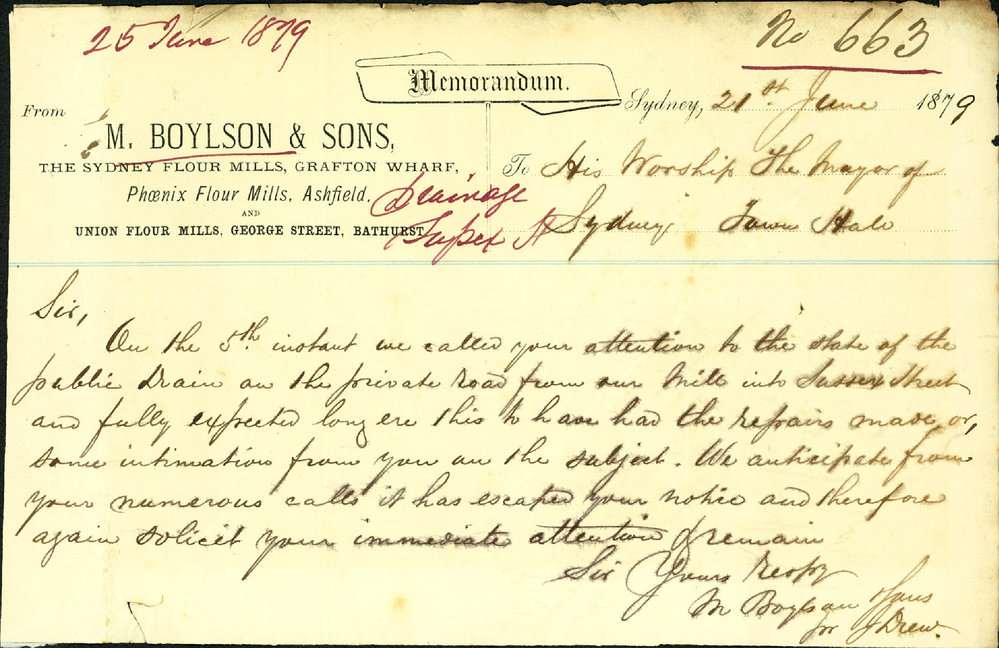 25 June 1879
No 663
Memorandum.
Sydney, 21st June 1879
From
M. BOYLSON & SONS,
THE SYDNEY FLOUR MILLS, GRAFTON WHARF,
Phœnix Flour Mills, Ashfield.
AND
UNION FLOUR MILLS, GEORGE STREET, BATHURST
Drainage
Sussex St
To His Worship The Mayor of
Sydney Town Hall
Sir,
On the 5th instant we called your attention to the state of the
public Drain on the private road from our Mill into Sussex Street
and fully expected long ere this to have had the repairs made or,
some intimation from you on the subject. We anticipate from
your numerous calls it has escaped your notice and therefore
again solicit your immediate attention & remain
Sir Yours Respy
M Boylson & Sons
pr J Drew.